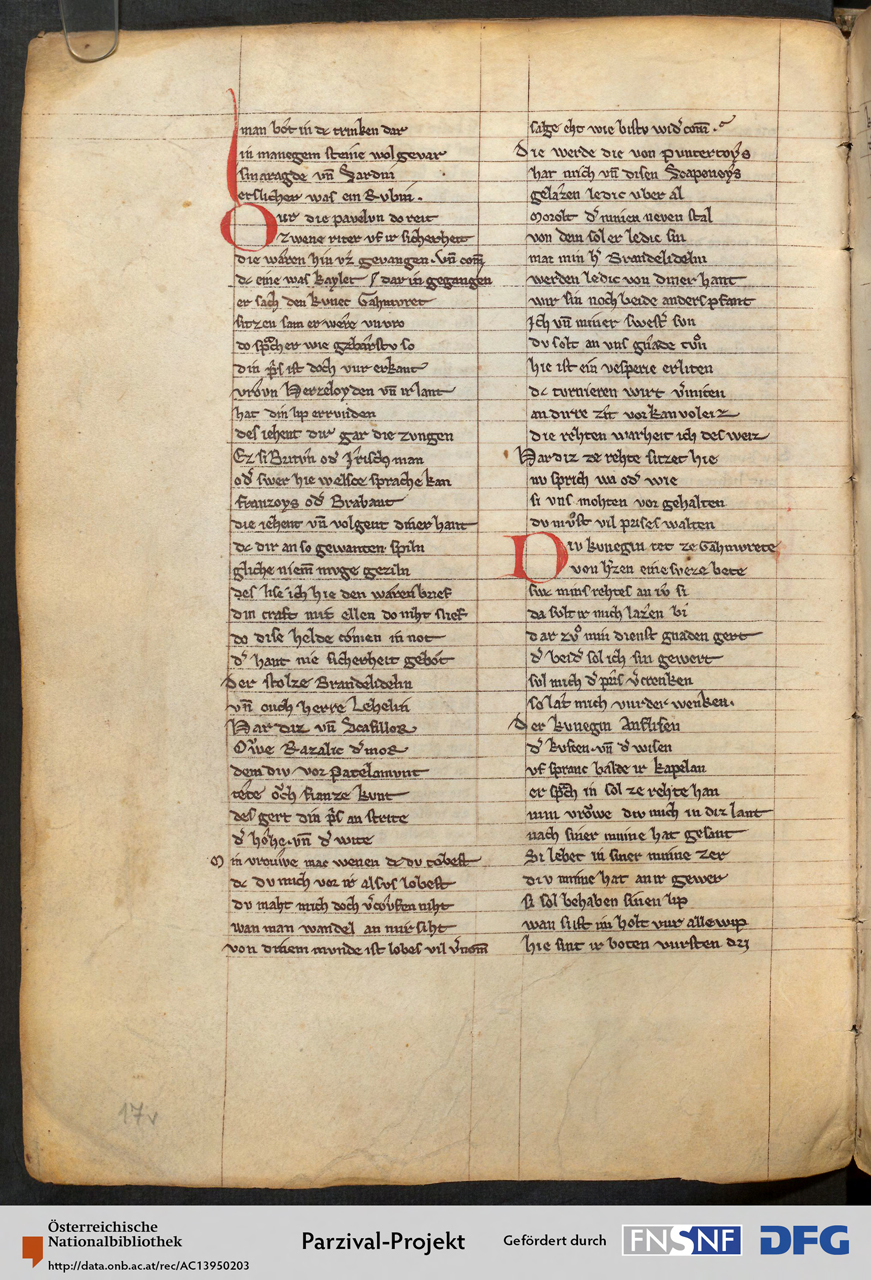 man bot in dc trinken dar
in manegem steine wol gevar
smaragde vn̄ Sardin
etslicher was ein Rubin.
Vur die pavelvn do reit
zwene riter vf ir sicherheit
die waren hin vz gevangen. vn̄ com̄
dc eine was kaylet / dar in gegangen
er sach den kvnec Gahmvret
sitzen sam er were vnvro
do sp̄ch er wie gebarstv so
din p̄s ist doch vur erkant
vrovn Herzeloyden vn̄ ir lant
hat din lip errvnden
des iehent dir gar die zvngen
Ez si Britvn od̓ Jrisch man
od̓ swer hie welsce sprache kan
franzoys od̓ Brabant
die iehent vn̄ volgent diner hant
dc dir an so gewanten spiln
gliche niem̄ mvge geziln
des lise ich hie den waren brief
din craft mit ellen do niht slief
do dise helde comen in not
d̓ hant nie sicherheit gebot
der stolze Brandelidelin
vn̄ ouch herre Lehelin
Hardiz vn̄ Scafillor
Owe Razalic d̓ mor
dem div vor Patelamvnt
tete och fianze kvnt
des gert din p̄s an strite
d̓ hohe. vn̄ d̓ wite
Min vrouwe mac wenen dc dv tobest
dc dv mich vor ir alsvs lobest
dv maht mich doch v̓covfen niht
wan man wandel an mir siht
von dinem mvnde ist lobes vil v̓nom̄
sage eht wie bistv wid̓ com̄.
Die werde die von Pvntertoys
hat mich vn̄ disen Scapenoys
gelazen ledic vber al
Morolt d̓ minen neven stal
von dem sol er ledic sin
mac min h̓ Brandelidelin
werden ledic von diner hant
wir sin noch beide anders pfant
Ich vn̄ miner swest̓ svn
dv solt an vns gnade tvon
hie ist ein vesperie erliten
dc tvrnieren wirt v̓miten
an dirre zit vor kanvoleiz
die rehten warheit ich des weiz
Hardiz ze rehte sitzet hie
nv sprich wa od̓ wie
si vns mohten vor gehalten
dv mvost vil prises walten
Div kvnegin tet ze Gahmvrete
von h̓zen eine sveze bete
swc mins rehtes an iv si
da svlt ir mich lazen bi
dar zvo min dienst gnaden gert
d̓ beid̓ sol ich sin gewert
svl mich d̓ pris v̓crenken
so lat mich vurder wenken.
der kvnegin Anflisen
d̓ kvsen. vn̄ d̓ wisen
vf spranc balde ir kapelan
er sp̄ch in sol ze rehte han
min vrowe div mich in diz lant
nach siner minne hat gesant
Si lebet in siner minne zer
div minne hat an ir gewer
si sol behaben sinen lip
wan si ist im holt vur alle wip
hie sint ir boten vursten dri
17v
Österreichische
Nationalbibliothek
http://data.onb.ac.at/rec/AC13950203
Parzival-Projekt
Gefördert durch
FNSNF
DFG